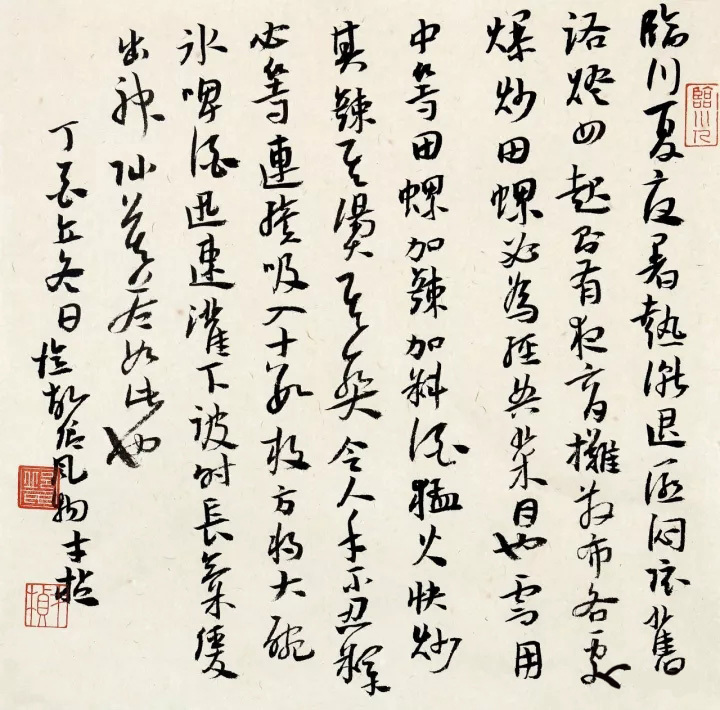 臨川夏夜暑熱漸退溽悶依舊
路燈四起即有夜宵攤散布各處
爆炒田螺必為經典菜目也需用
中等田螺加辣加料酒猛火快炒
其辣至燙至令人手不忍釋
必等連續吸入十數枚方將大碗
冰啤酒迅速灌下彼時長氣優
出神仙若如此也
丁酉冬日憶故居風物 士楨
臨川人